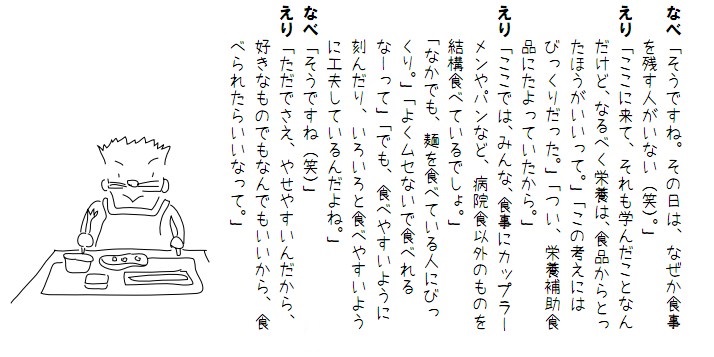 なべ「そうですね。その日は、なぜか食事
を残す人がいない（笑）。」
えり「ここに来て、それも学んだことなん
だけど、なるべく栄養は、食品からとっ
たほうがいいって。」「この考えには
びっくりだった。」「つい、栄養補助食
品にたよっていたから。」
えり「ここでは、みんな、食事にカップラー
メンやパンなど、病院食以外のものを
結構食べているでしょ。」
「なかでも、麺を食べている人にびっ
くり。」「よくムセないで食べれる
なーって」「でも、食べやすいように
刻んだり、いろいろと食べやすいよう
に工夫しているんだよね。」
なべ「そうですね（笑）」
えり「ただでさえ、やせやすいんだから、
好きなものでもなんでもいいから、食
べられたらいいなって。」